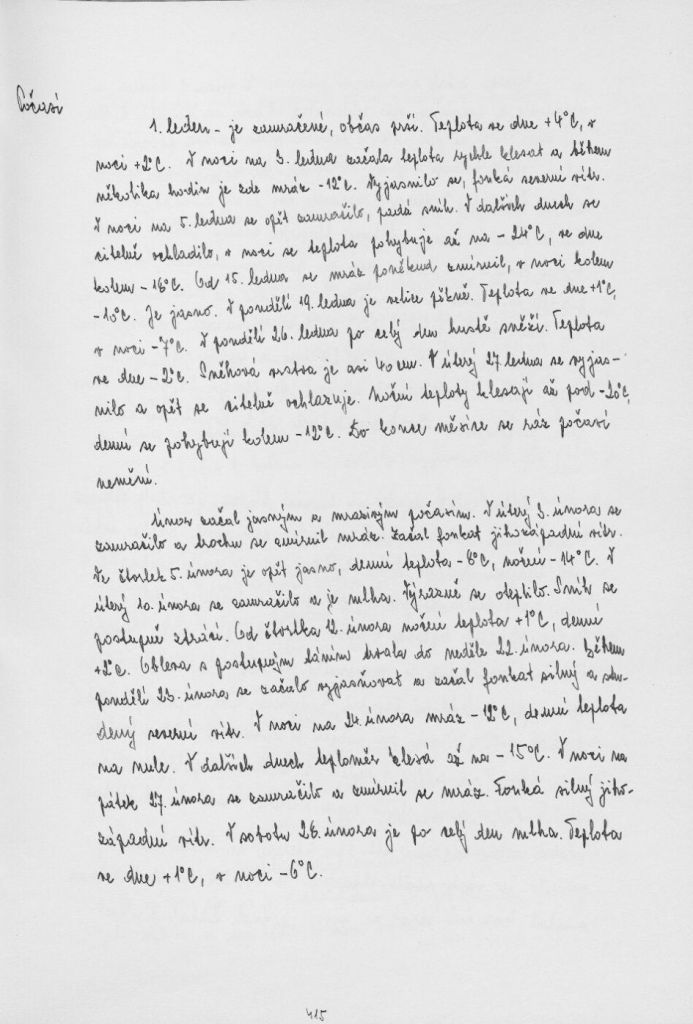 Počasí
1. leden - je zamračené, občas prší. Teplota ve dne +4°C, v
noci +2°C. V noci na 3. ledna začala teplota rychle klesat a během
několika hodin je zde mráz -12°C. Vyjasnilo se, fouká severní vítr.
V noci na 5. ledna se opět zamračilo, padá sníh. V dalších dnech se
citelně ochladilo, v noci se teplota pohybuje až na -24°C, ve dne
kolem -18°C. Od 15. ledna se mráz poněkud zmírnil, v noci kolem
-10°C. Je jasno. V pondělí 19. ledna je velice pěkně. Teplota ve dne +1°C,
v noci -7°C. V pondělí 26. ledna po celý den hustě sněží. Teplota
ve dne -2°C. Sněhová vrstva je asi 40 cm. V úterý 27. ledna se vyjas-
nilo a opět se citelně ochlazuje. Noční teploty klesají až pod -20°C,
denní se pohybují kolem -12°C. Do konce měsíce se ráz počasí
nemění.
Únor začal jasným a mrazivým počasím. V úterý 3. února se
zamračilo a trochu se zmírnil mráz. Začal foukat jihozápadní vítr.
Ve čtvrtek 5. února je opět jasno, denní teplota -8°C, noční -14°C. V
úterý 10. února se zamračilo a je mlha. Výrazně se oteplilo. Sníh se
postupně ztrácí. Od čtvrtka 12. února noční teplota +1°C, denní
+2°C. Obleva s postupným táním trvala do neděle 22. února. Během
pondělí 23. února se začalo vyjasňovat a začal foukat silný a stu-
dený severní vítr. V noci na 24. února mráz -12°C, denní teplota
na nule. V dalších dnech teploměr klesá až na -15°C. V noci na
pátek 27. února se zamračilo a zmírnil se mráz. Fouká silný jiho-
západní vítr. V sobotu 28. února je po celý den mlha. Teplota
ve dne +1°C, v noci -6°C.
415